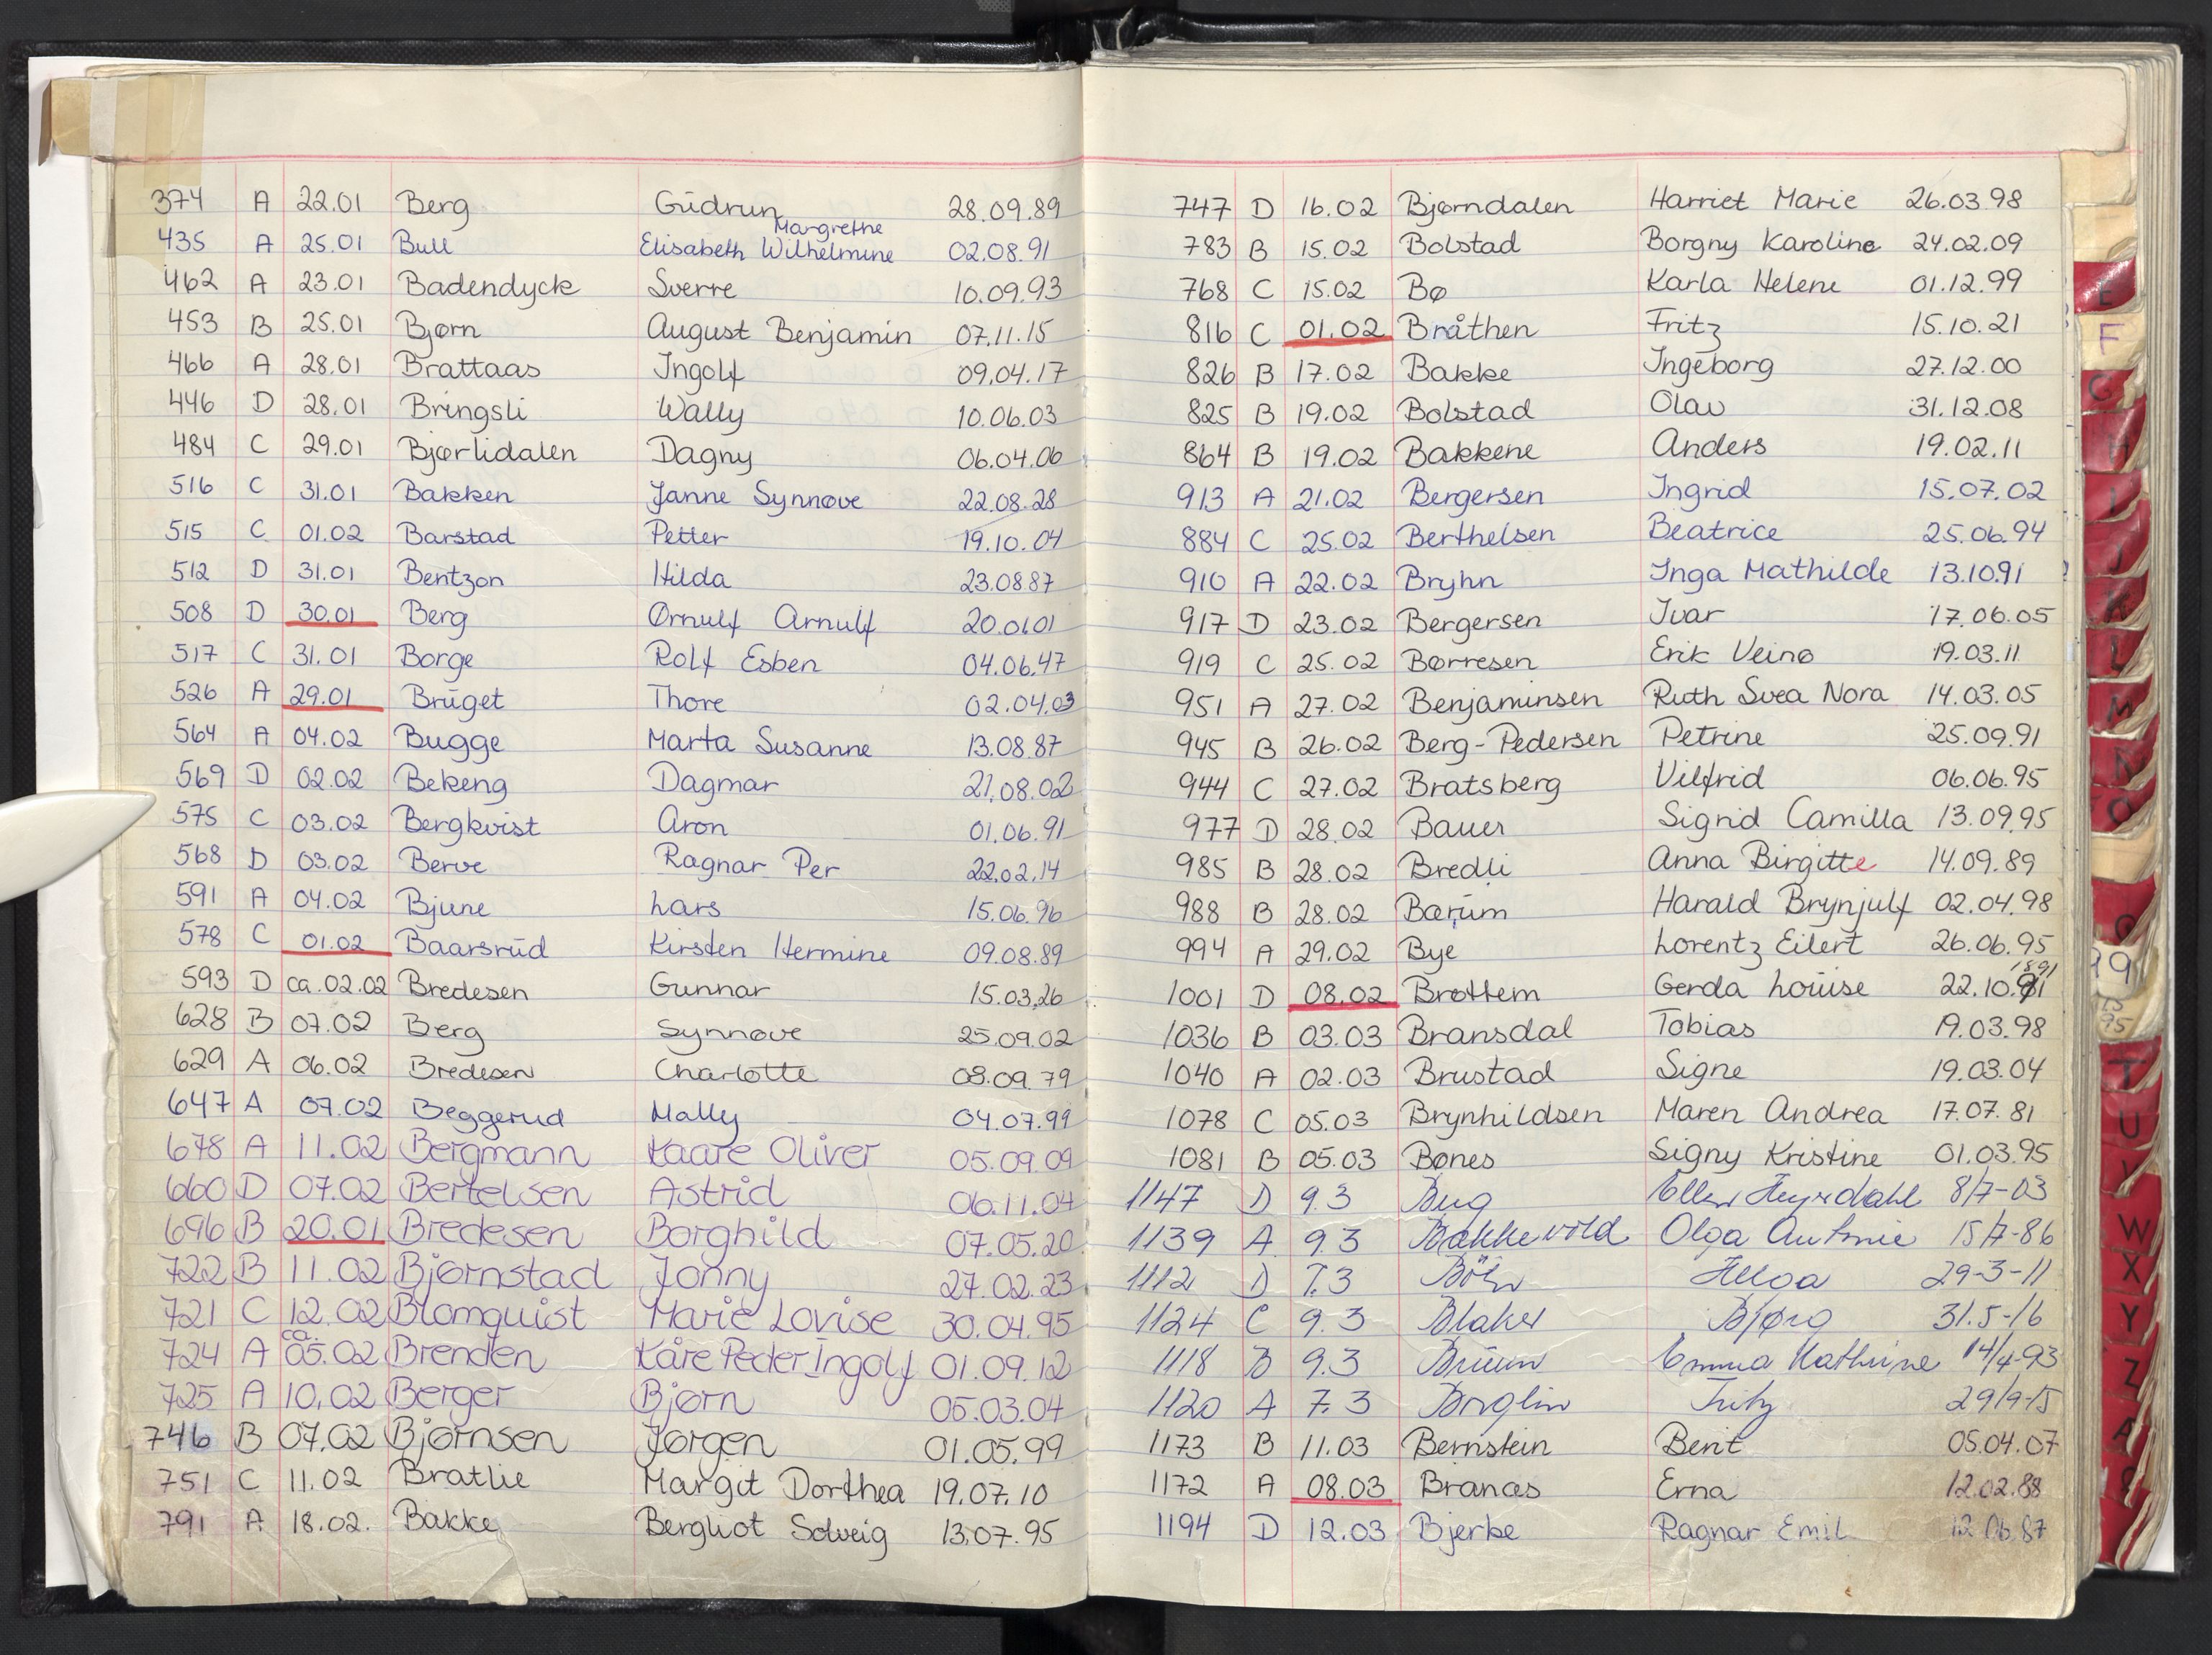 374 A 22.01 Berg Gudrun 28.09.89
Margrethe
435 A 25.01 Bull Elisabeth Wilhelmine 02.08.91
462 A 23.01 Badendyck Sverre 10.09.93
453 B 25.01 Bjørn August Benjamin 07.11.15
466 A 28.01 Brattaas Ingolf 09.04.17
446 D 28.01 Bringsli Wally 10.06.03
484 C 29.01 Bjørlidalen Dagny 06.04.06
516 C 31.01 Bakken Janne Synnøve 22.08.28
515 C 01.02 Barstad Petter 19.10.04
512 D 31.01 Bentzon Hilda 23.08.87
508 D 30.01 Berg Ørnulf Arnulf 20.01.01
517 C 31.01 Borge Rolf Esben 04.06.47
526 A 29.01 Bruget Thore 02.04.03
564 A 04.02 Bugge Marta Susanne 13.08.87
569 D 02.02 Bekeng Dagmar 21.08.02
575 C 03.02 Bergkvist Aron 01.06.91
568 D 03.02 Berve Ragnar Per 22.02.14
591 A 04.02 Bjune Lars 15.06.96
578 C 01.02 Baarsrud Kirsten Hermine 09.08.89
593 D ca. 02.02 Bredesen Gunnar 15.03.26
628 B 07.02 Berg Synnøve 25.09.02
629 A 06.02 Bredesen Charlotte 08.09.79
647 A 07.02 Beggerud Mally 04.07.99
678 A 11.02 Bergmann Kaare Oliver 05.09.09
660 D 07.02 Bertelsen Astrid 06.11.04
696 B 20.01 Bredesen Borghild 07.05.20
722 B 11.02 Bjørnstad Jonny 27.02.23
721 C 12.02 Blomquist Marie Lovise 30.04.95
724 A ca. 05.02 Brenden Kåre Peder Ingolf 01.09.12
725 A 10.02 Berger Bjørn 05.03.04
746 B 07.02 Bjørnsen Jørgen 01.05.99
751 C 11.02 Bratlie Margit Dorthea 19.07.10
791 A 18.02. Bakke Bergliot Solveig 13.07.95
747 D 16.02 Bjørndalen Harriet Marie 26.03.98
783 B 15.02 Bolstad Borgny Karoline 24.02.09
768 C 15.02 Bø Karla Helene 01.12.99
816 C 01.02 Bråthen Fritz 15.10.21
826 B 17.02 Bakke Ingeborg 27.12.00
825 B 19.02 Bolstad Olav 31.12.08
864 B 19.02 Bakkene Anders 19.02.11
913 A 21.02 Bergersen Ingrid 15.07.02
884 C 25.02 Berthelsen Beatrice 25.06.94
910 A 22.02 Bryhn Inga Mathilde 13.10.91
917 D 23.02 Bergersen Ivar 17.06.05
919 C 25.02 Børresen Erik Veinø 19.03.11
951 A 27.02 Benjaminsen Ruth Svea Nora 14.03.05
945 B 26.02 Berg-Pedersen Petrine 25.09.91
944 C 27.02 Bratsberg Vilfrid 06.06.95
977 D 28.02 Bauer Sigrid Camilla 13.09.95
985 B 28.02 Bredli Anna Birgitte 14.09.89
988 B 28.02 Bærum Harald Brynjulf 02.04.98
994 A 29.02 Bye Lorentz Eilert 26.06.95
1891
1001 D 08.02 Brottem Gerda Louise 22.10.91
1036 B 03.03 Bransdal Tobias 19.03.98
1040 A 02.03 Brustad Signe 19.03.04
1078 C 05.03 Brynhildsen Maren Andrea 17.07.81
1081 B 05.03 Bønes Signy Kristine 01.03.95
1147 D 9.3 Heyrdahl 8/7-03
1139 A 9.3 Bakkevold Olga Antonie 15/7-86
1112 D 7.3 Helga 29-3-11
1124 C 9.3 Blaker Bjørg 31.5-16
1118 B 9.3 Bruun Emma Kathrine 14/4-93
1120 A 7.3 Fritz 29/9-15
1173 B 11.03 Bernstein Berit 05.04.07
1172 A 08.03 Branæs Erna 12.02.88
1194 D 12.03 Bjerke Ragnar Emil 12.06.87
E
F
G
H
I
J
K
L
M
N
O
T
U
V
W
X
Y
Z